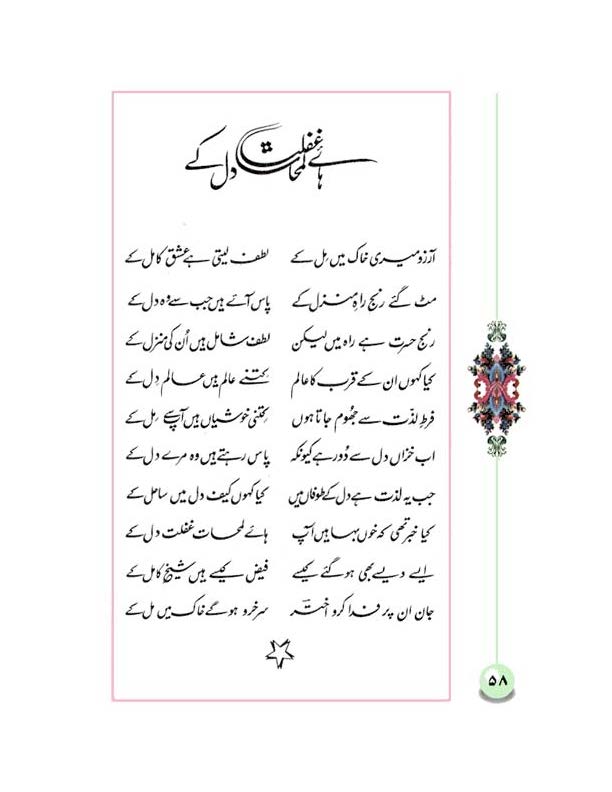 ہائے لمحات غفلت دل کے
آرزو میری خاک میں مِل کے لطف لیتی ہے عشق کامل کے
مٹ گئے رنج راہِ منزل کے پاس آئے ہیں جب سے وہ دل کے
رنج حسرت ہے راہ میں لیکن لطف شامل ہیں اُن کی منزل کے
کیا کہوں ان کے قرب کا عالم کتنے عالم ہیں عالمِ دِل کے
فرطِ لذّت سے جھُوم جاتا ہوں کتنی خوشیاں ہیں آپ سے مِل کے
اب خزاں دل سے دُور ہے کیونکہ پاس رہتے ہیں وہ مرے دل کے
جب یہ لذت ہے دل کے طوفاں میں کیا کہوں کیف دل میں ساحل کے
کیا خبر تھی کہ خوں بہا ہیں آپ ہائے لمحات غفلت دل کے
ایسے ویسے بھی ہو گئے کیسے فیض کیسے ہیں شیخِ کامل کے
جان ان پر فدا کرو اخترؔ سرخرو ہو گے خاک میں مل کے
۵۸